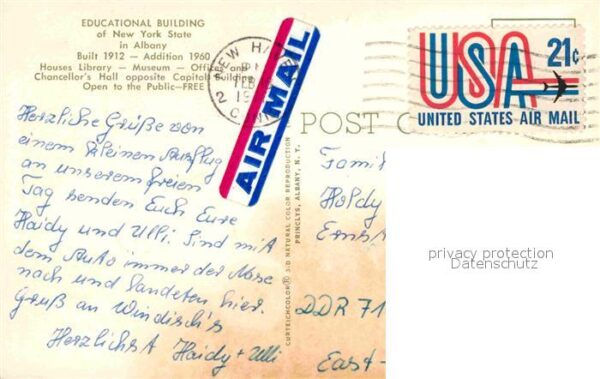 EDUCATIONAL BUILDING
of New York State
in Albany
Built 1912 — Addition 1960
Houses Library — Museum — Offices and
Chancellor's Hall opposite Capitol Building
Open to the Public—FREE
Herzliche Grüße von
einem kleinen Ausflug
an unserem freien
Tag senden Euch Eure
Haidy und Ulli. Sind mit
dem Auto immer der Nase
nach und landeten hier.
Gruß an Windisch's
Herzlichst Haidy + Ulli
NEW HA
PM
FEB
19
CONN
AIR MAIL
USA 21¢
UNITED STATES AIR MAIL
POST C
CURTEICHCOLOR® 3-D NATURAL COLOR REPRODUCTION
PRINCLYS, ALBANY, N. Y.
Famil
Holdy
Ernst
DDR 71
East-
privacy protection
Datenschutz